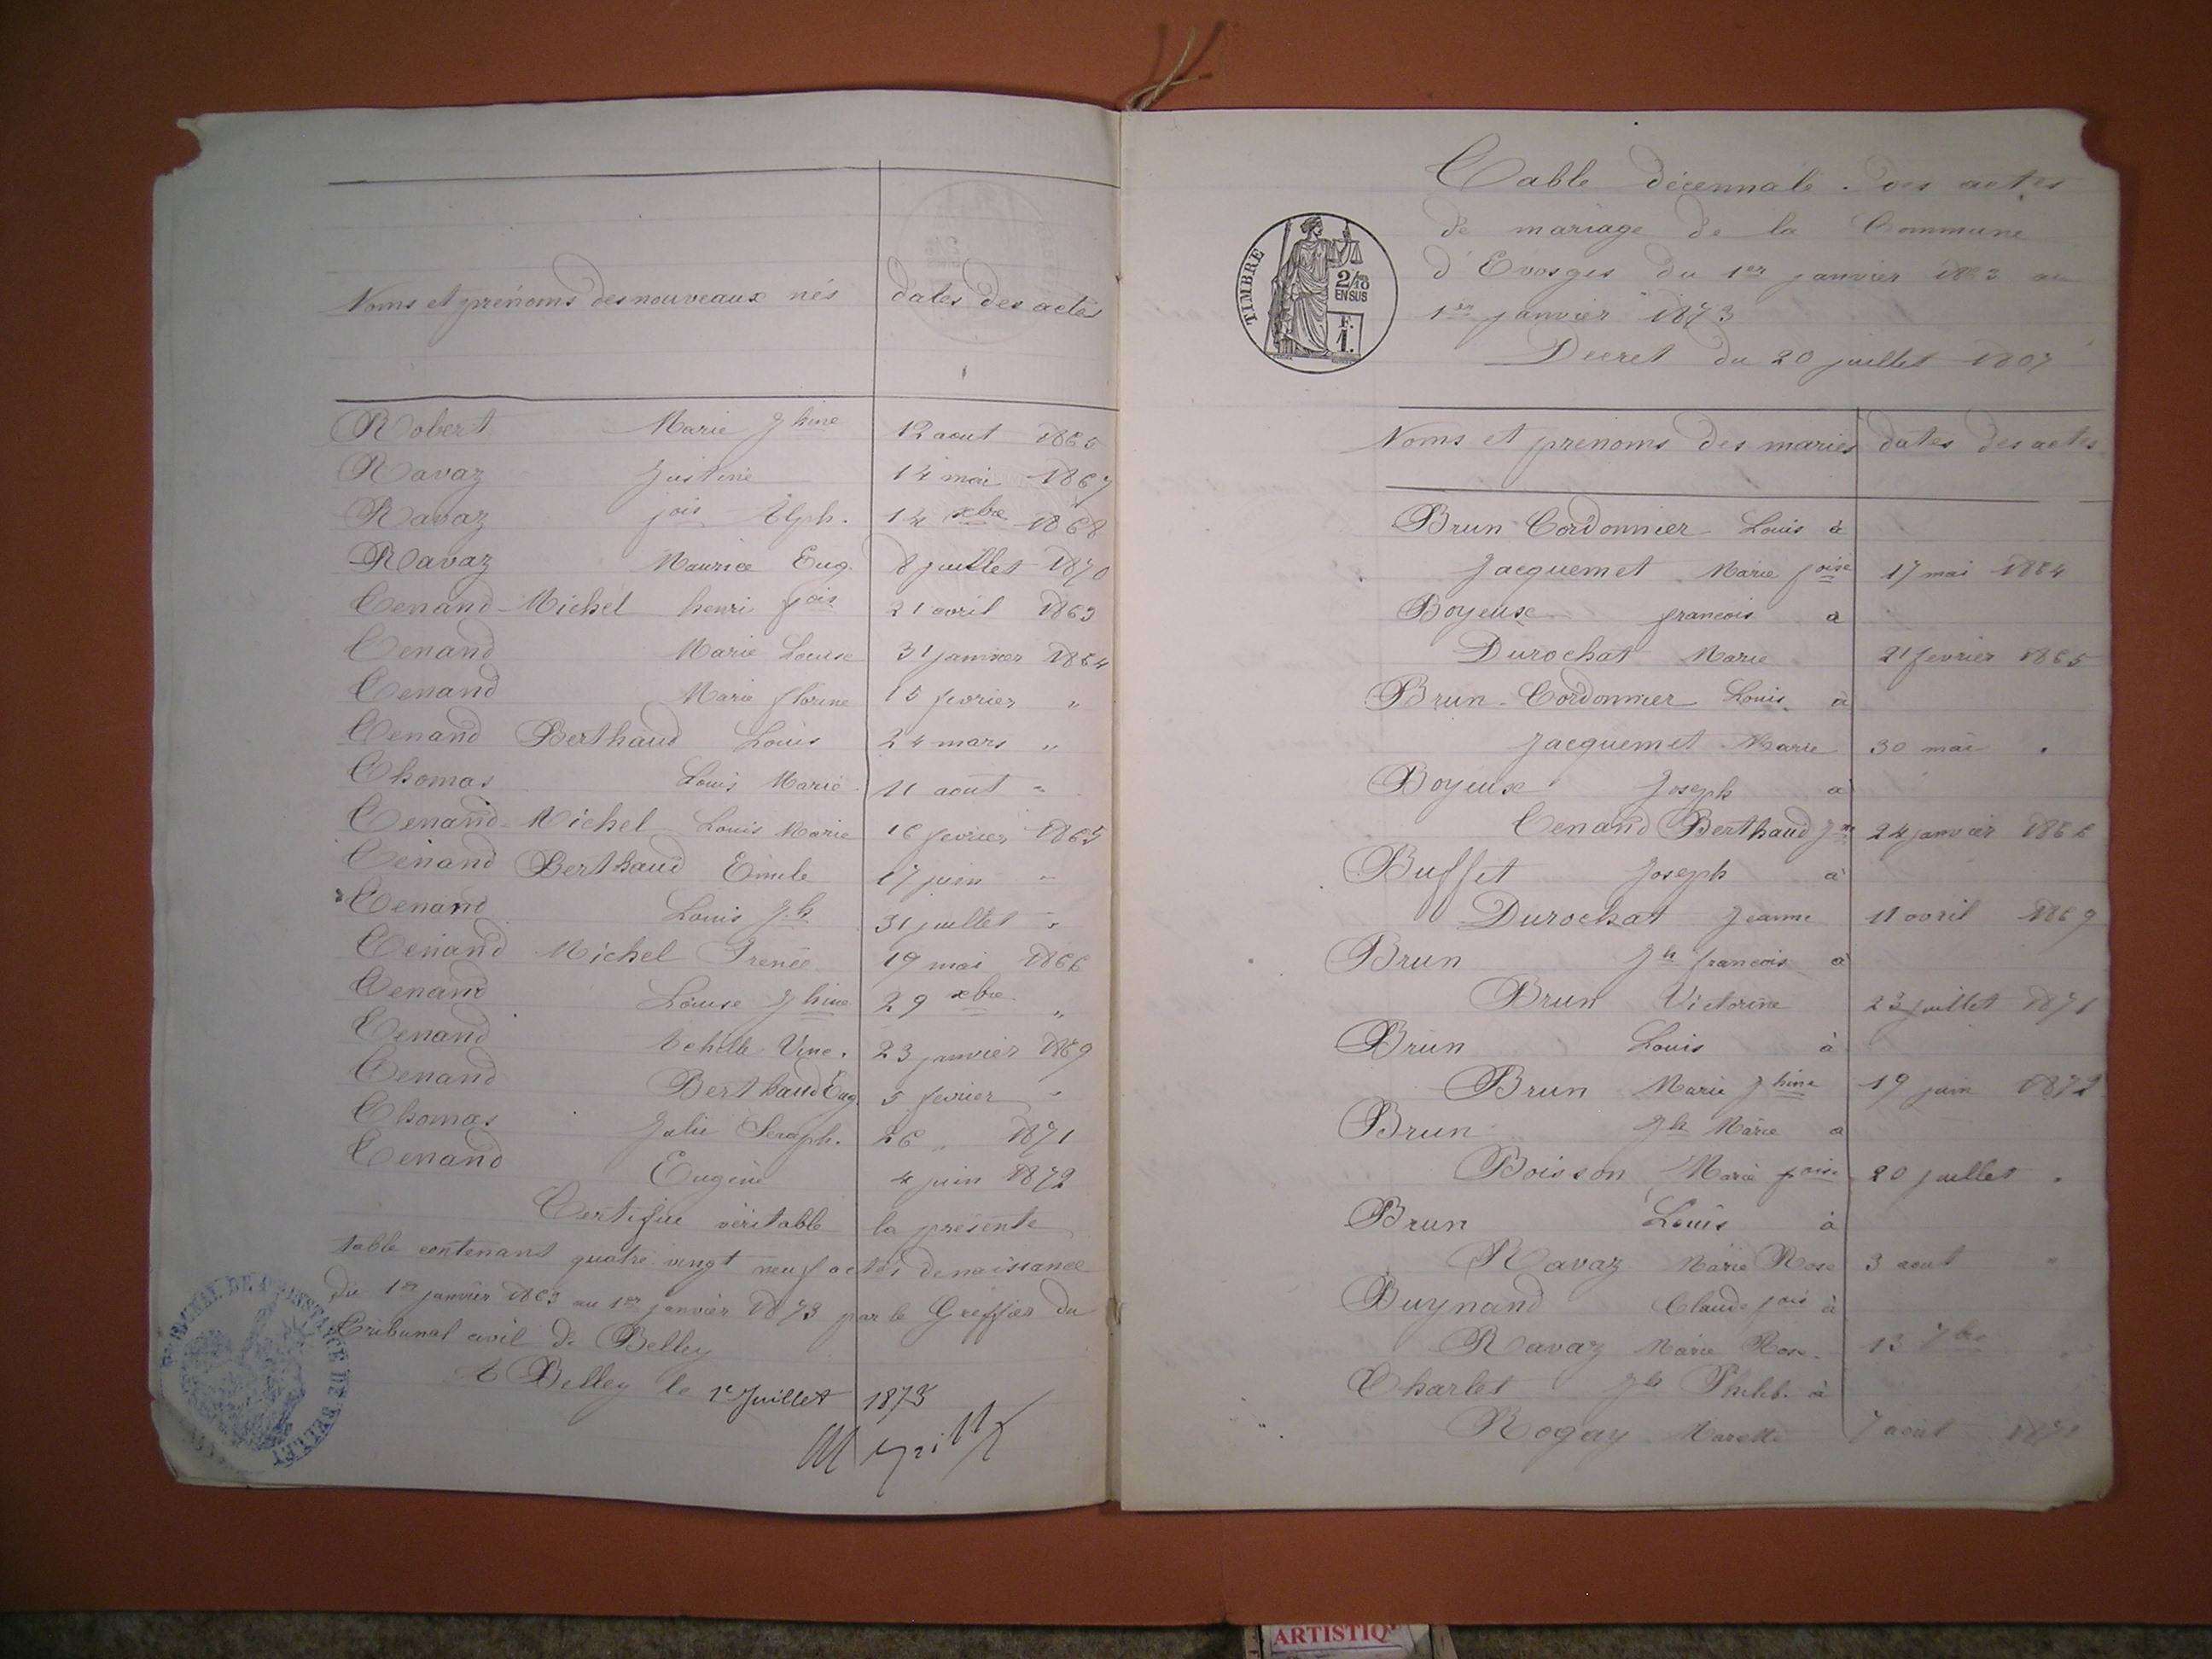 Noms et prénoms des nouveaux nés dates des actes
Robert Marie Jhine 12 aout 1865
Ravaz Justine 14 mai 1867
Ravaz fois Alph. 14 xbre 1868
Ravaz Maurice Eug. 8 juillet 1870
Tenand-Michel henri fois 21 avril 1863
Tenand Marie Louise 31 janvier 1864
Tenand Marie florine 15 fevrier "
Tenand Berthaud Louis 24 mars "
Thomas Louis Marie 11 aout "
Tenand-Michel Louis Marie 16 fevrier 1865
Tenand Berthaud Emile 17 juin "
Tenand Louis Jh 31 juillet "
Tenand Michel Irenée 19 mai 1866
Tenand Louise Jhine 29 xbre "
Tenand Achille Vinc. 23 janvier 1869
Tenand Berthaud Eug. 5 fevrier "
Thomas Julie Seraph. 26 " 1871
Tenand Eugène 4 juin 1872
Certifiée véritable la présente
table contenant quatre vingt neuf actes de naissance
du 1er janvier 1863 au 1er janvier 1873 par le Greffier du
Tribunal civil de Belley
A Belley le 1er Juillet 1873
TRIBUNAL DE 1e INSTANCE DE BELLEY
Table décennale des actes
de mariage de la Commune
d'Evosges du 1er janvier 1863 au
1er janvier 1873
Decret du 20 juillet 1807
TIMBRE
2/10
EN SUS
F.
1.
Noms et prenoms des mariés dates des actes
Brun-Cordonnier Louis à
Jacquemet Marie foise 17 mai 1864
Boyeux francois à
Durochat Marie 21 fevrier 1865
Brun-Cordonnier Louis à
Jacquemet Marie 30 mai "
Boyeux Joseph à
Tenand Berthaud 24 janvier 1866
Buffet Joseph à
Durochat Jeanne 11 avril 1869
Brun Jh francois à
Brun Victorine 23 juillet 1871
Brun Louis à
Brun Marie Jhine 19 juin 1872
Brun Jh Marie à
Boisson Marie foise 20 juillet "
Brun Louis à
Ravaz Marie Rose 3 aout "
Buynand Claude fois à
Ravaz Marie Rose 13 7bre "
Charlet Jh Philib. à
Rogay 7 aout
ARTISTIQ